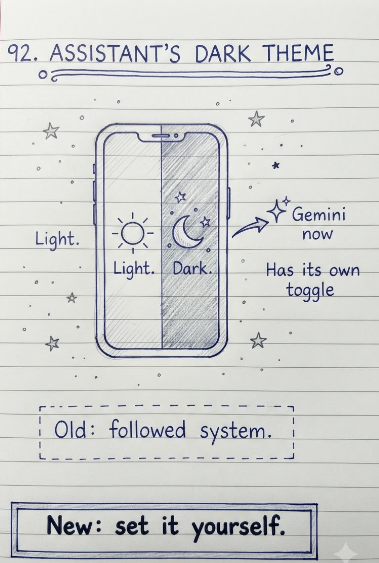 92. ASSISTANT'S DARK THEME
Gemini
now
Light.
Light. Dark.
Has its own
toggle
Old: followed system.
New: set it yourself.